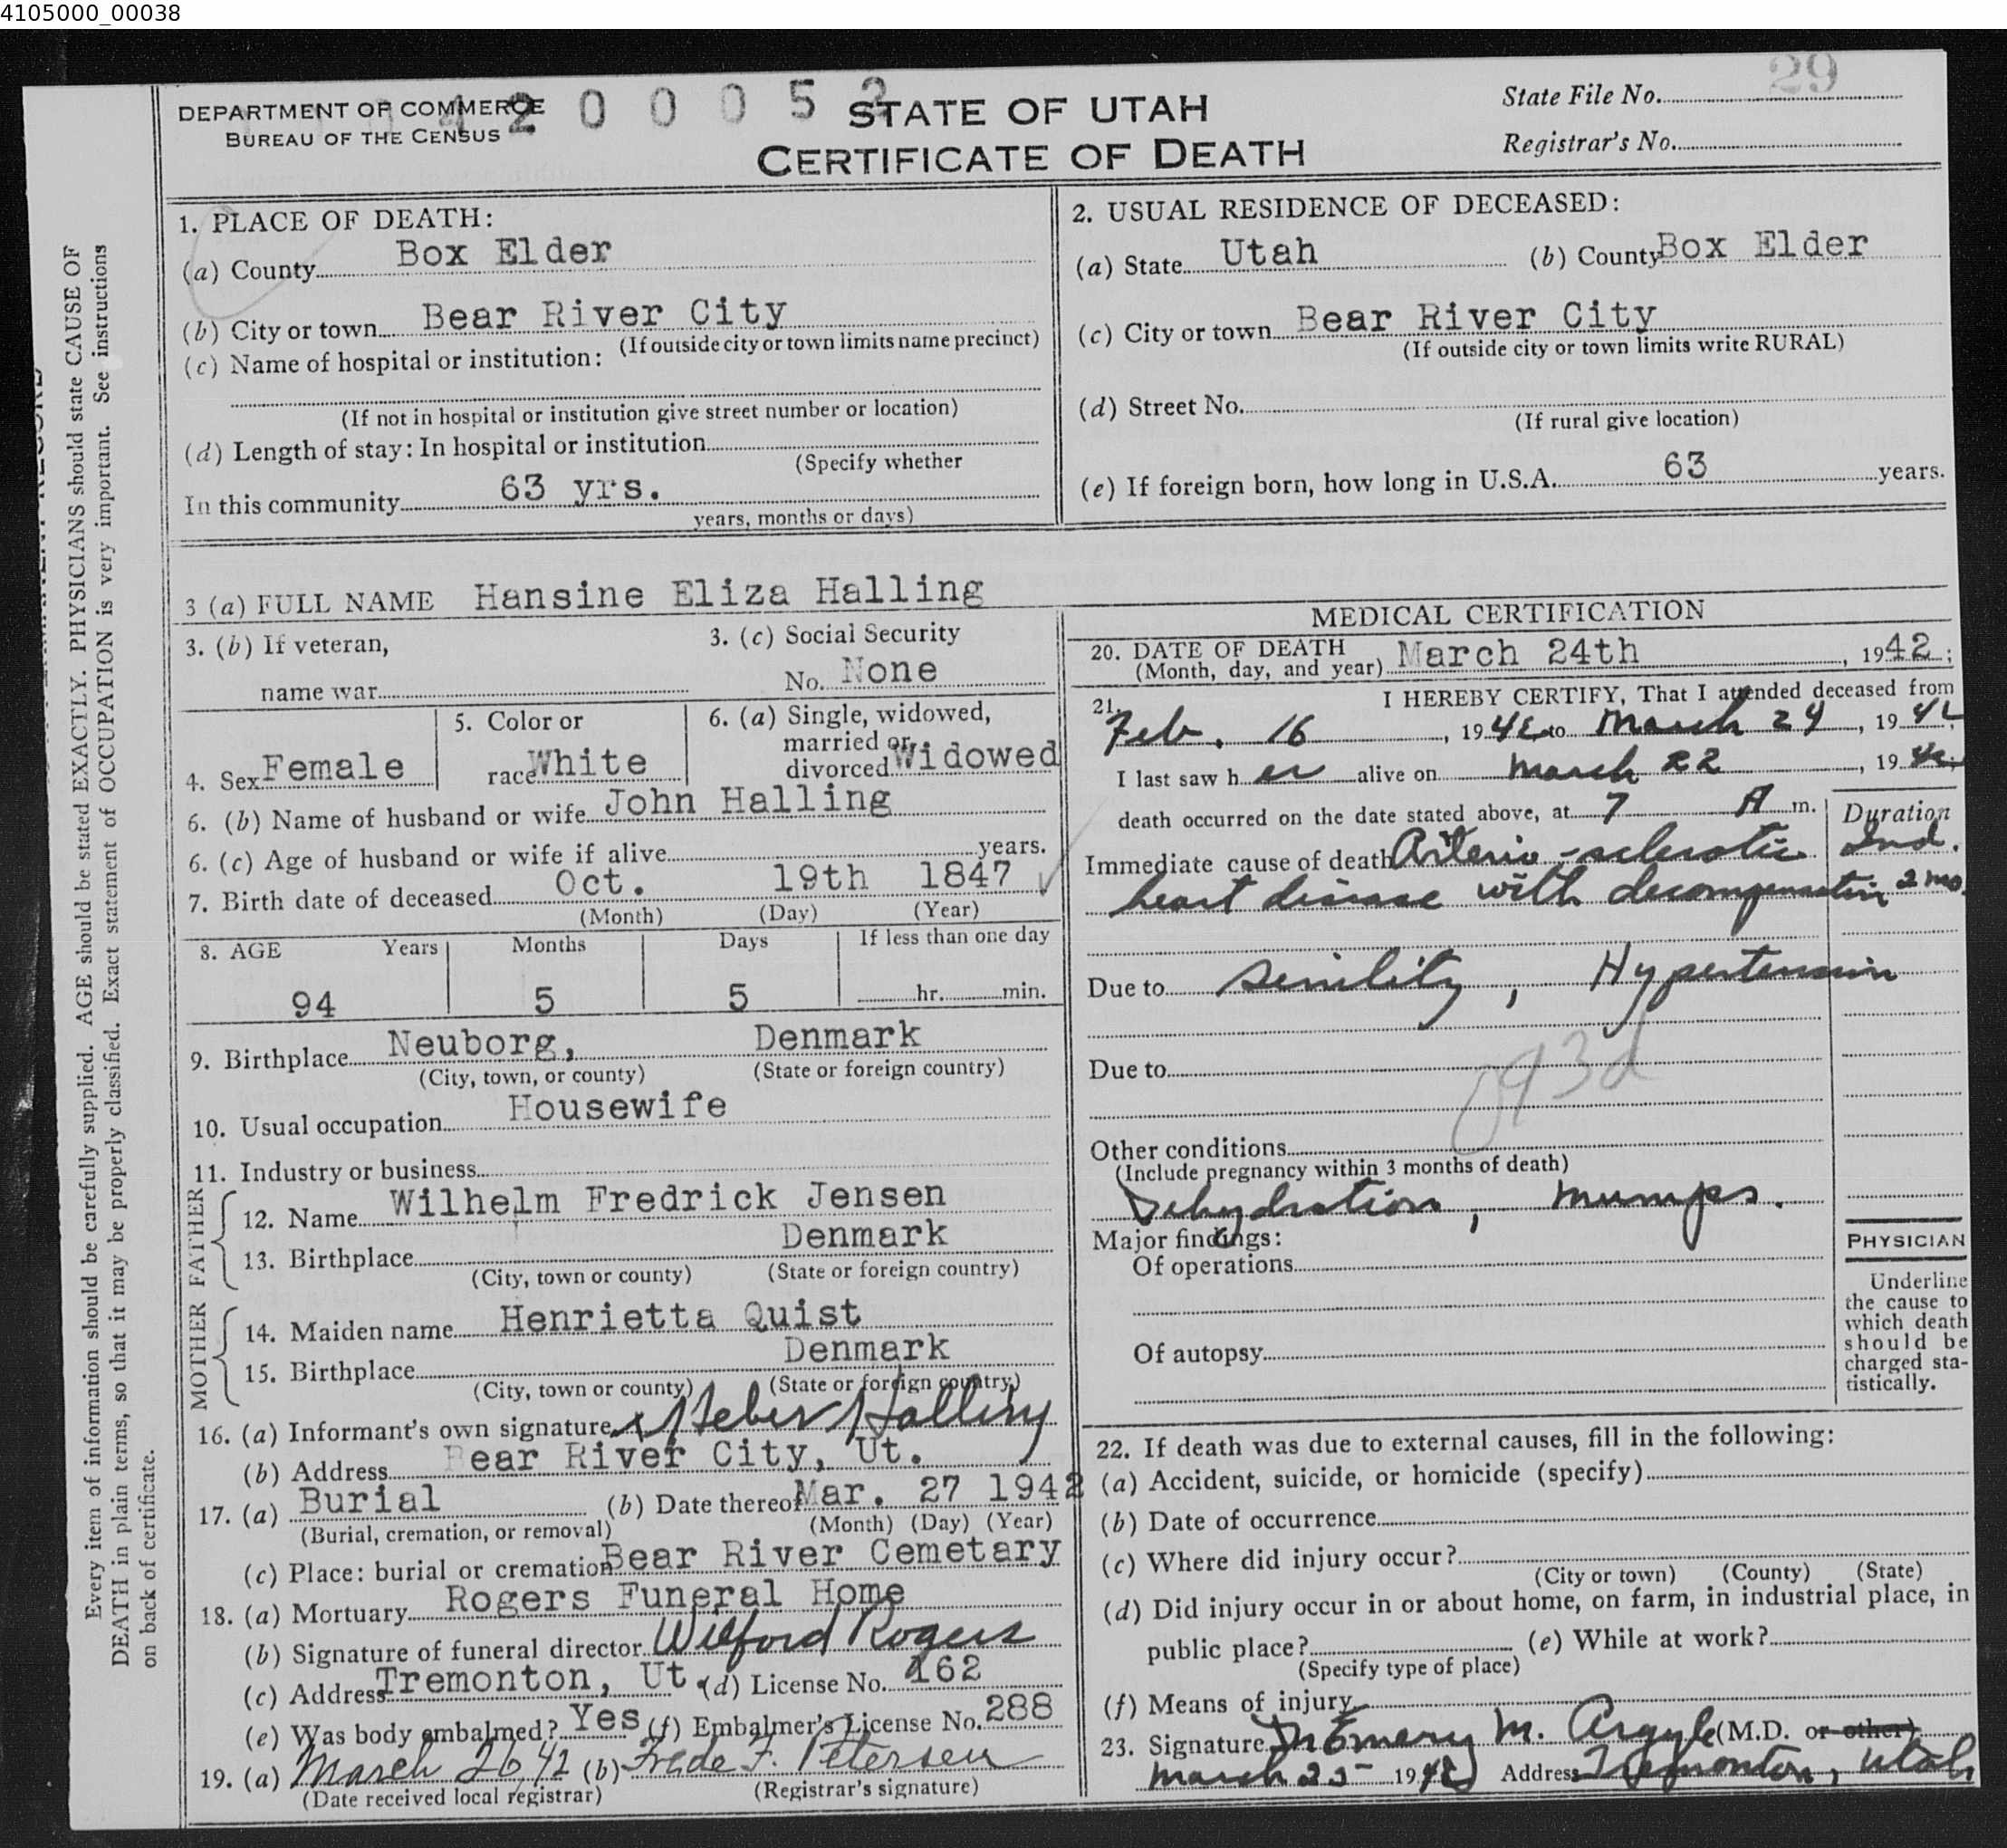 4105000_00038
DEPARTMENT OF COMMERCE
BUREAU OF THE CENSUS
STATE OF UTAH
CERTIFICATE OF DEATH
State File No. 29
Registrar's No.
1. PLACE OF DEATH:
(a) County Box Elder
(b) City or town Bear River City
(If outside city or town limits name precinct)
(c) Name of hospital or institution:
(If not in hospital or institution give street number or location)
(d) Length of stay: In hospital or institution
(Specify whether
In this community 63 yrs.
years, months or days)
2. USUAL RESIDENCE OF DECEASED:
(a) State Utah (b) County Box Elder
(c) City or town Bear River City
(If outside city or town limits write RURAL)
(d) Street No.
(If rural give location)
(e) If foreign born, how long in U.S.A. 63 years.
3 (a) FULL NAME Hansine Eliza Halling
3. (b) If veteran,
name war
3. (c) Social Security
No. None
4. Sex Female
5. Color or
race White
6. (a) Single, widowed,
married or
divorced Widowed
6. (b) Name of husband or wife John Halling
6. (c) Age of husband or wife if alive years.
7. Birth date of deceased Oct. 19th 1847
(Month) (Day) (Year)
8. AGE Years Months Days If less than one day
94 5 5 hr. min.
9. Birthplace Neuborg, Denmark
(City, town, or county) (State or foreign country)
10. Usual occupation Housewife
11. Industry or business
FATHER
12. Name Wilhelm Fredrick Jensen
13. Birthplace Denmark
(City, town or county) (State or foreign country)
MOTHER
14. Maiden name Henrietta Quist
15. Birthplace Denmark
(City, town or county) (State or foreign country)
16. (a) Informant's own signature x Heber Halling
(b) Address Bear River City, Ut.
17. (a) Burial (b) Date thereof Mar. 27 1942
(Burial, cremation, or removal) (Month) (Day) (Year)
(c) Place: burial or cremation Bear River Cemetary
18. (a) Mortuary Rogers Funeral Home
(b) Signature of funeral director Wilford Rogers
(c) Address Tremonton, Ut. (d) License No. 162
(e) Was body embalmed? Yes (f) Embalmer's License No. 288
19. (a) March 26, 42 (b) Frede F. Petersen
(Date received local registrar) (Registrar's signature)
MEDICAL CERTIFICATION
20. DATE OF DEATH
(Month, day, and year) March 24th, 1942;
21. I HEREBY CERTIFY, That I attended deceased from
Feb. 16, 1942 to March 24, 1942
I last saw her alive on March 22, 1942
death occurred on the date stated above, at 7 A m.
Duration
Immediate cause of death Arterio-sclerotic Ind.
heart disease with decompensation 2 mo.
Due to senility, Hypertension
Due to
093d
Other conditions
(Include pregnancy within 3 months of death)
Dehydration, mumps.
Major findings:
Of operations
Of autopsy
PHYSICIAN
Underline
the cause to
which death
should be
charged sta-
tistically.
22. If death was due to external causes, fill in the following:
(a) Accident, suicide, or homicide (specify)
(b) Date of occurrence
(c) Where did injury occur?
(City or town) (County) (State)
(d) Did injury occur in or about home, on farm, in industrial place, in
public place? (e) While at work?
(Specify type of place)
(f) Means of injury
23. Signature Emery M. Argyle (M.D. or other)
March 25 1942 Address Tremonton, Utah
Every item of information should be carefully supplied. AGE should be stated EXACTLY. PHYSICIANS should state CAUSE OF
DEATH in plain terms, so that it may be properly classified. Exact statement of OCCUPATION is very important. See instructions
on back of certificate.